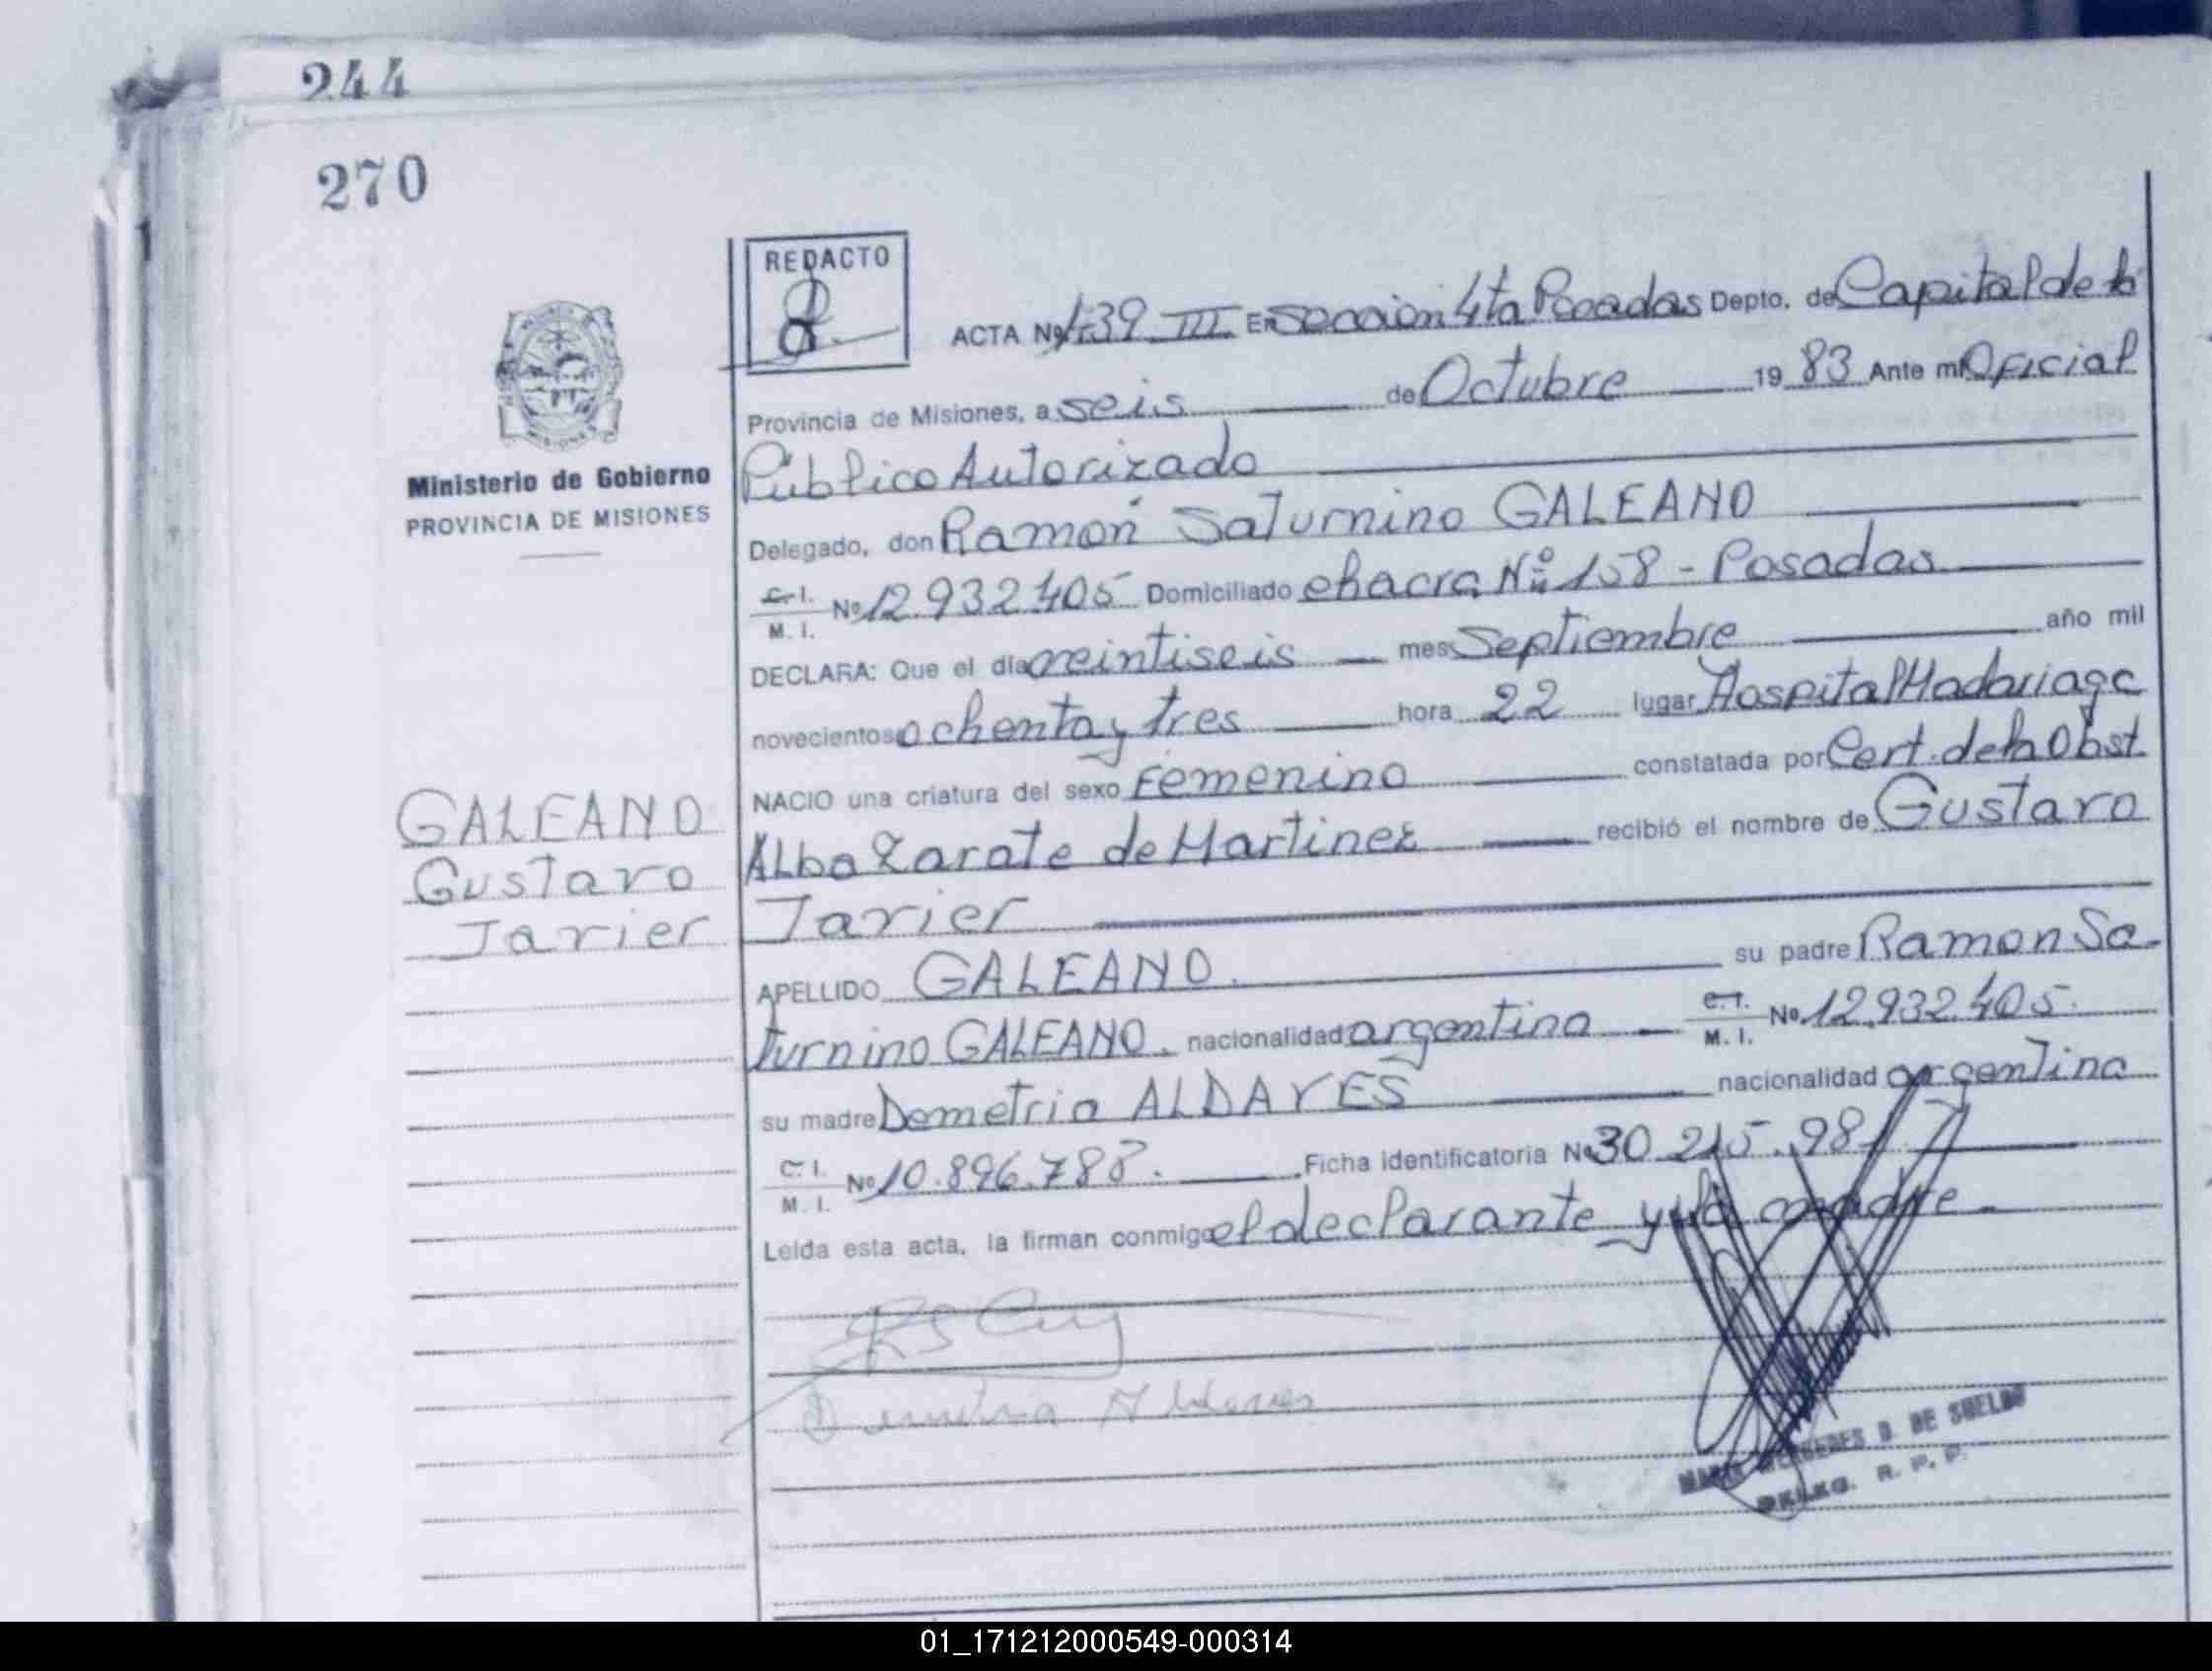 244
270
REDACTO
ACTA Nº 439 III En Seccion 4ta Posadas Depto. de Capital de la
Provincia de Misiones, a seis de Octubre 19 83 Ante mi Oficial
Público Autorizado
Ministerio de Gobierno
PROVINCIA DE MISIONES
Delegado, don Ramón Saturnino GALEANO
C.I. M.I. Nº 12.932.405 Domiciliado chacra Nº 158 - Posadas
DECLARA: Que el día veintiseis mes Septiembre año mil
novecientos ochenta y tres hora 22 lugar Hospital Madariaga
NACIO una criatura del sexo Femenino constatada por Cert. de la Obst.
Alba Zarate de Martinez recibió el nombre de Gustavo
Javier
GALEANO
Gustavo
Javier
APELLIDO GALEANO. su padre Ramon Sa-
turnino GALEANO. nacionalidad argentina C.I. M.I. Nº 12.932.405.
su madre Demetria ALDAVES nacionalidad argentina
C.I. M.I. Nº 10.896.788. Ficha identificatoria Nº 30.215.981
Leida esta acta, la firman conmigo el declarante y la madre.
Demetria Aldaves
DE SUELDO
DELEG. R. P. P.
01_171212000549-000314